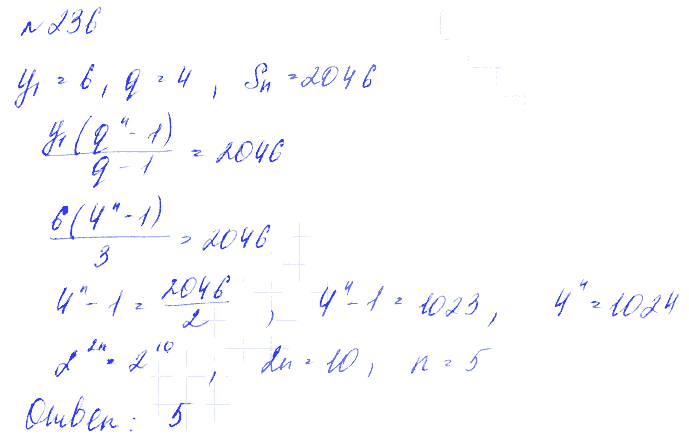 № 236
y₁ = 6, q = 4, Sₙ = 2046
y₁(qⁿ - 1) / (q - 1) = 2046
6(4ⁿ - 1) / 3 = 2046
4ⁿ - 1 = 2046 / 2, 4ⁿ - 1 = 1023, 4ⁿ = 1024
2²ⁿ = 2¹⁰, 2n = 10, n = 5
Ответ: 5